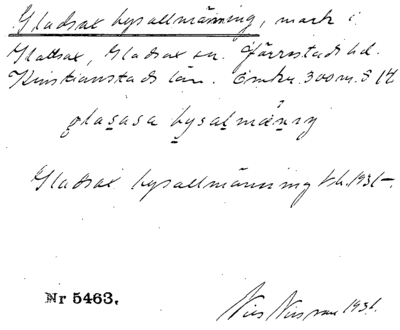 Gladsax bysallmänning, mark i
Glattsax, Gladsax sn. Järrestads hd.
Kristianstads län. Omkr. 300 m. S 14
glasasa bysalmäniŋ
Gladsax bysallmänning 1931
Nr 5463.
Nils Nilsson 1931.